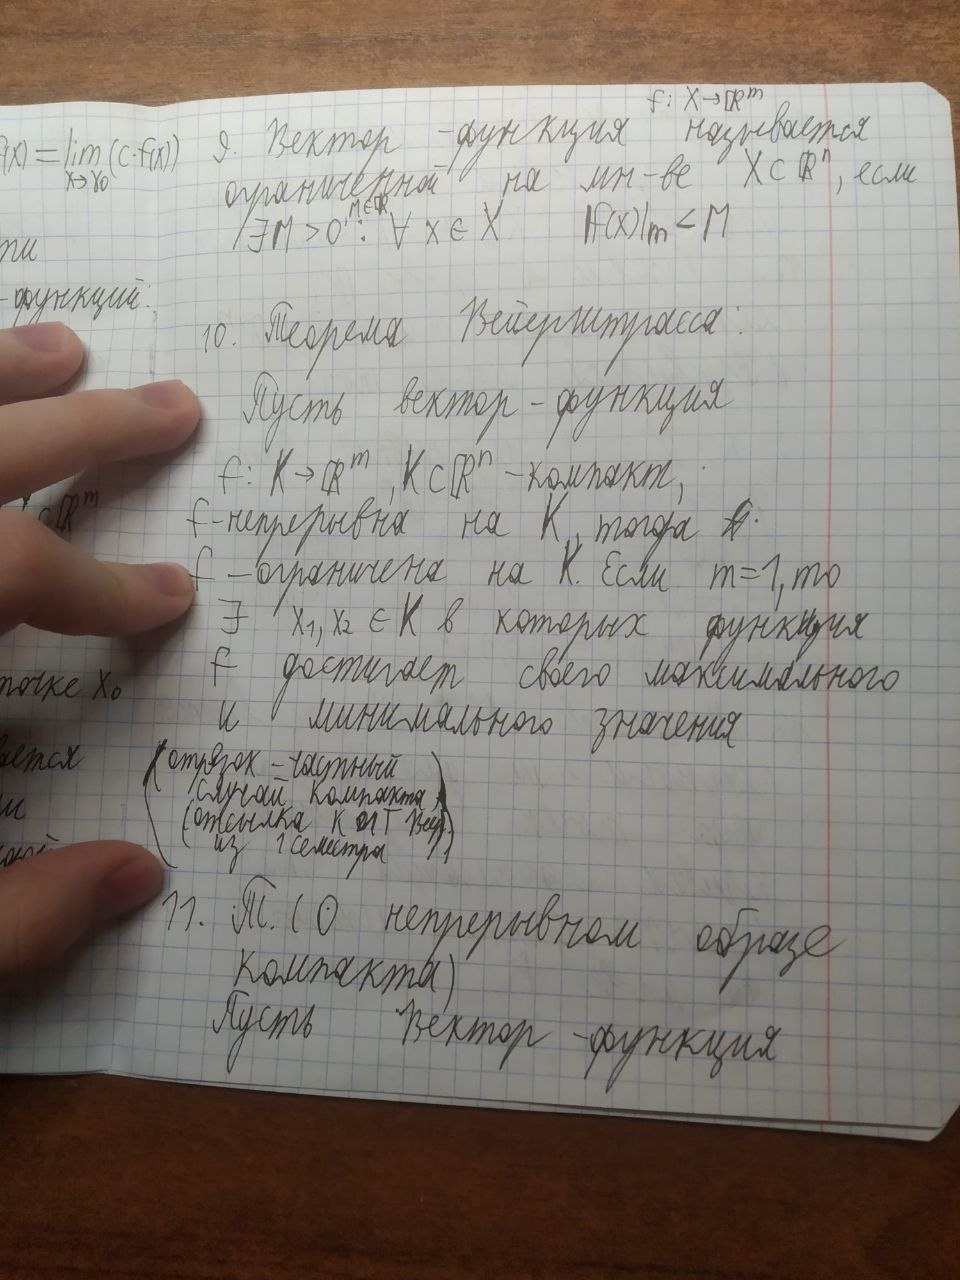 f(x) = lim (c·f(x))
x→x₀
ти
-функций:
⊂ℝᵐ
точке x₀
ается
f: X→ℝᵐ
9. Вектор-функция называется
ограниченной на мн-ве X⊂ℝⁿ, если
∃M>0, M∈ℝ: ∀ x∈X |f(x)|ₘ<M
10. Теорема Вейерштрасса:
Пусть вектор-функция
f: K→ℝᵐ, K⊂ℝⁿ -компакт,
f-непрерывна на K, тогда
f -ограничена на K. Если m=1, то
∃ x₁, x₂ ∈ K в которых функция
f достигает своего максимального
и минимального значения
(отрезок - частный
случай компакта)
(отсылка к Вейр.
из 1 семестра)
11. Т. (О непрерывном образе
компакта)
Пусть Вектор-функция